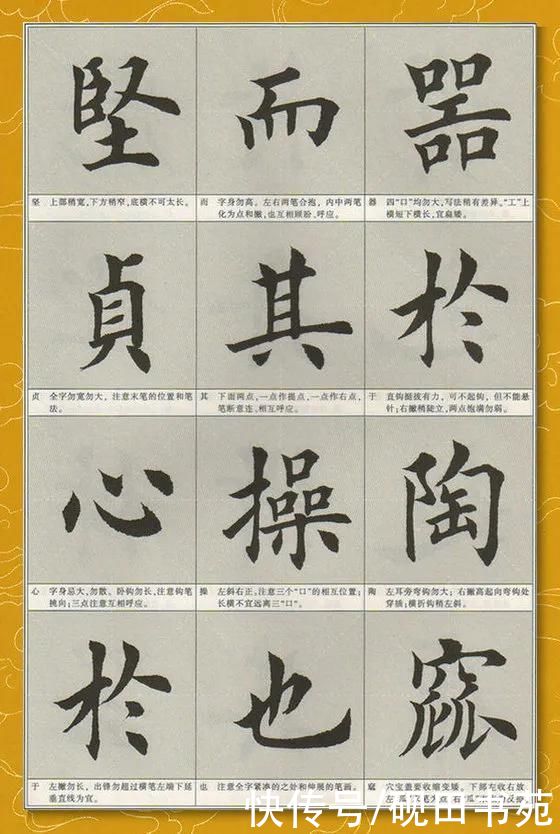 堅 而 器
坚 上部稍宽，下方稍窄，底横不可太长。
而 字身勿高。左右两笔合抱，内中两笔
化为点和撇，也互相顾盼、呼应。
器 四“口”均勿大，写法稍有差异。“工”上
横短下横长，宜扁矮。
貞 其 於
贞 全字勿宽勿大，注意末笔的位置和笔
法。
其 下面两点，一点作提点，一点作右点，
笔断意连、相互呼应。
于 直钩挺拔有力，可不起钩，但不能悬
针；右撇稍陡立，两点饱满勿弱。
心 操 陶
心 字身忌大，勿散。卧钩勿长，注意钩笔
挑向；三点注意互相呼应。
操 左斜右正，注意三个“口”的相互位置；
长横不宜远离三“口”。
陶 左耳旁弯钩勿大；右撇高起向弯钩处
穿插；横折钩稍左斜。
於 也 窳
于 左撇勿长，出锋勿超过横笔左端下延
垂直线为宜。
也 注意全字紧凑之处和伸展的笔画。
窳 穴宝盖要收缩变矮。下部左收右放
快传号/砚田书苑